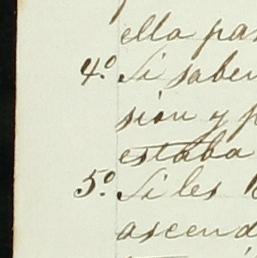 ella pas
4º Si saben
sion y p
estaba
5º Si les
ascend